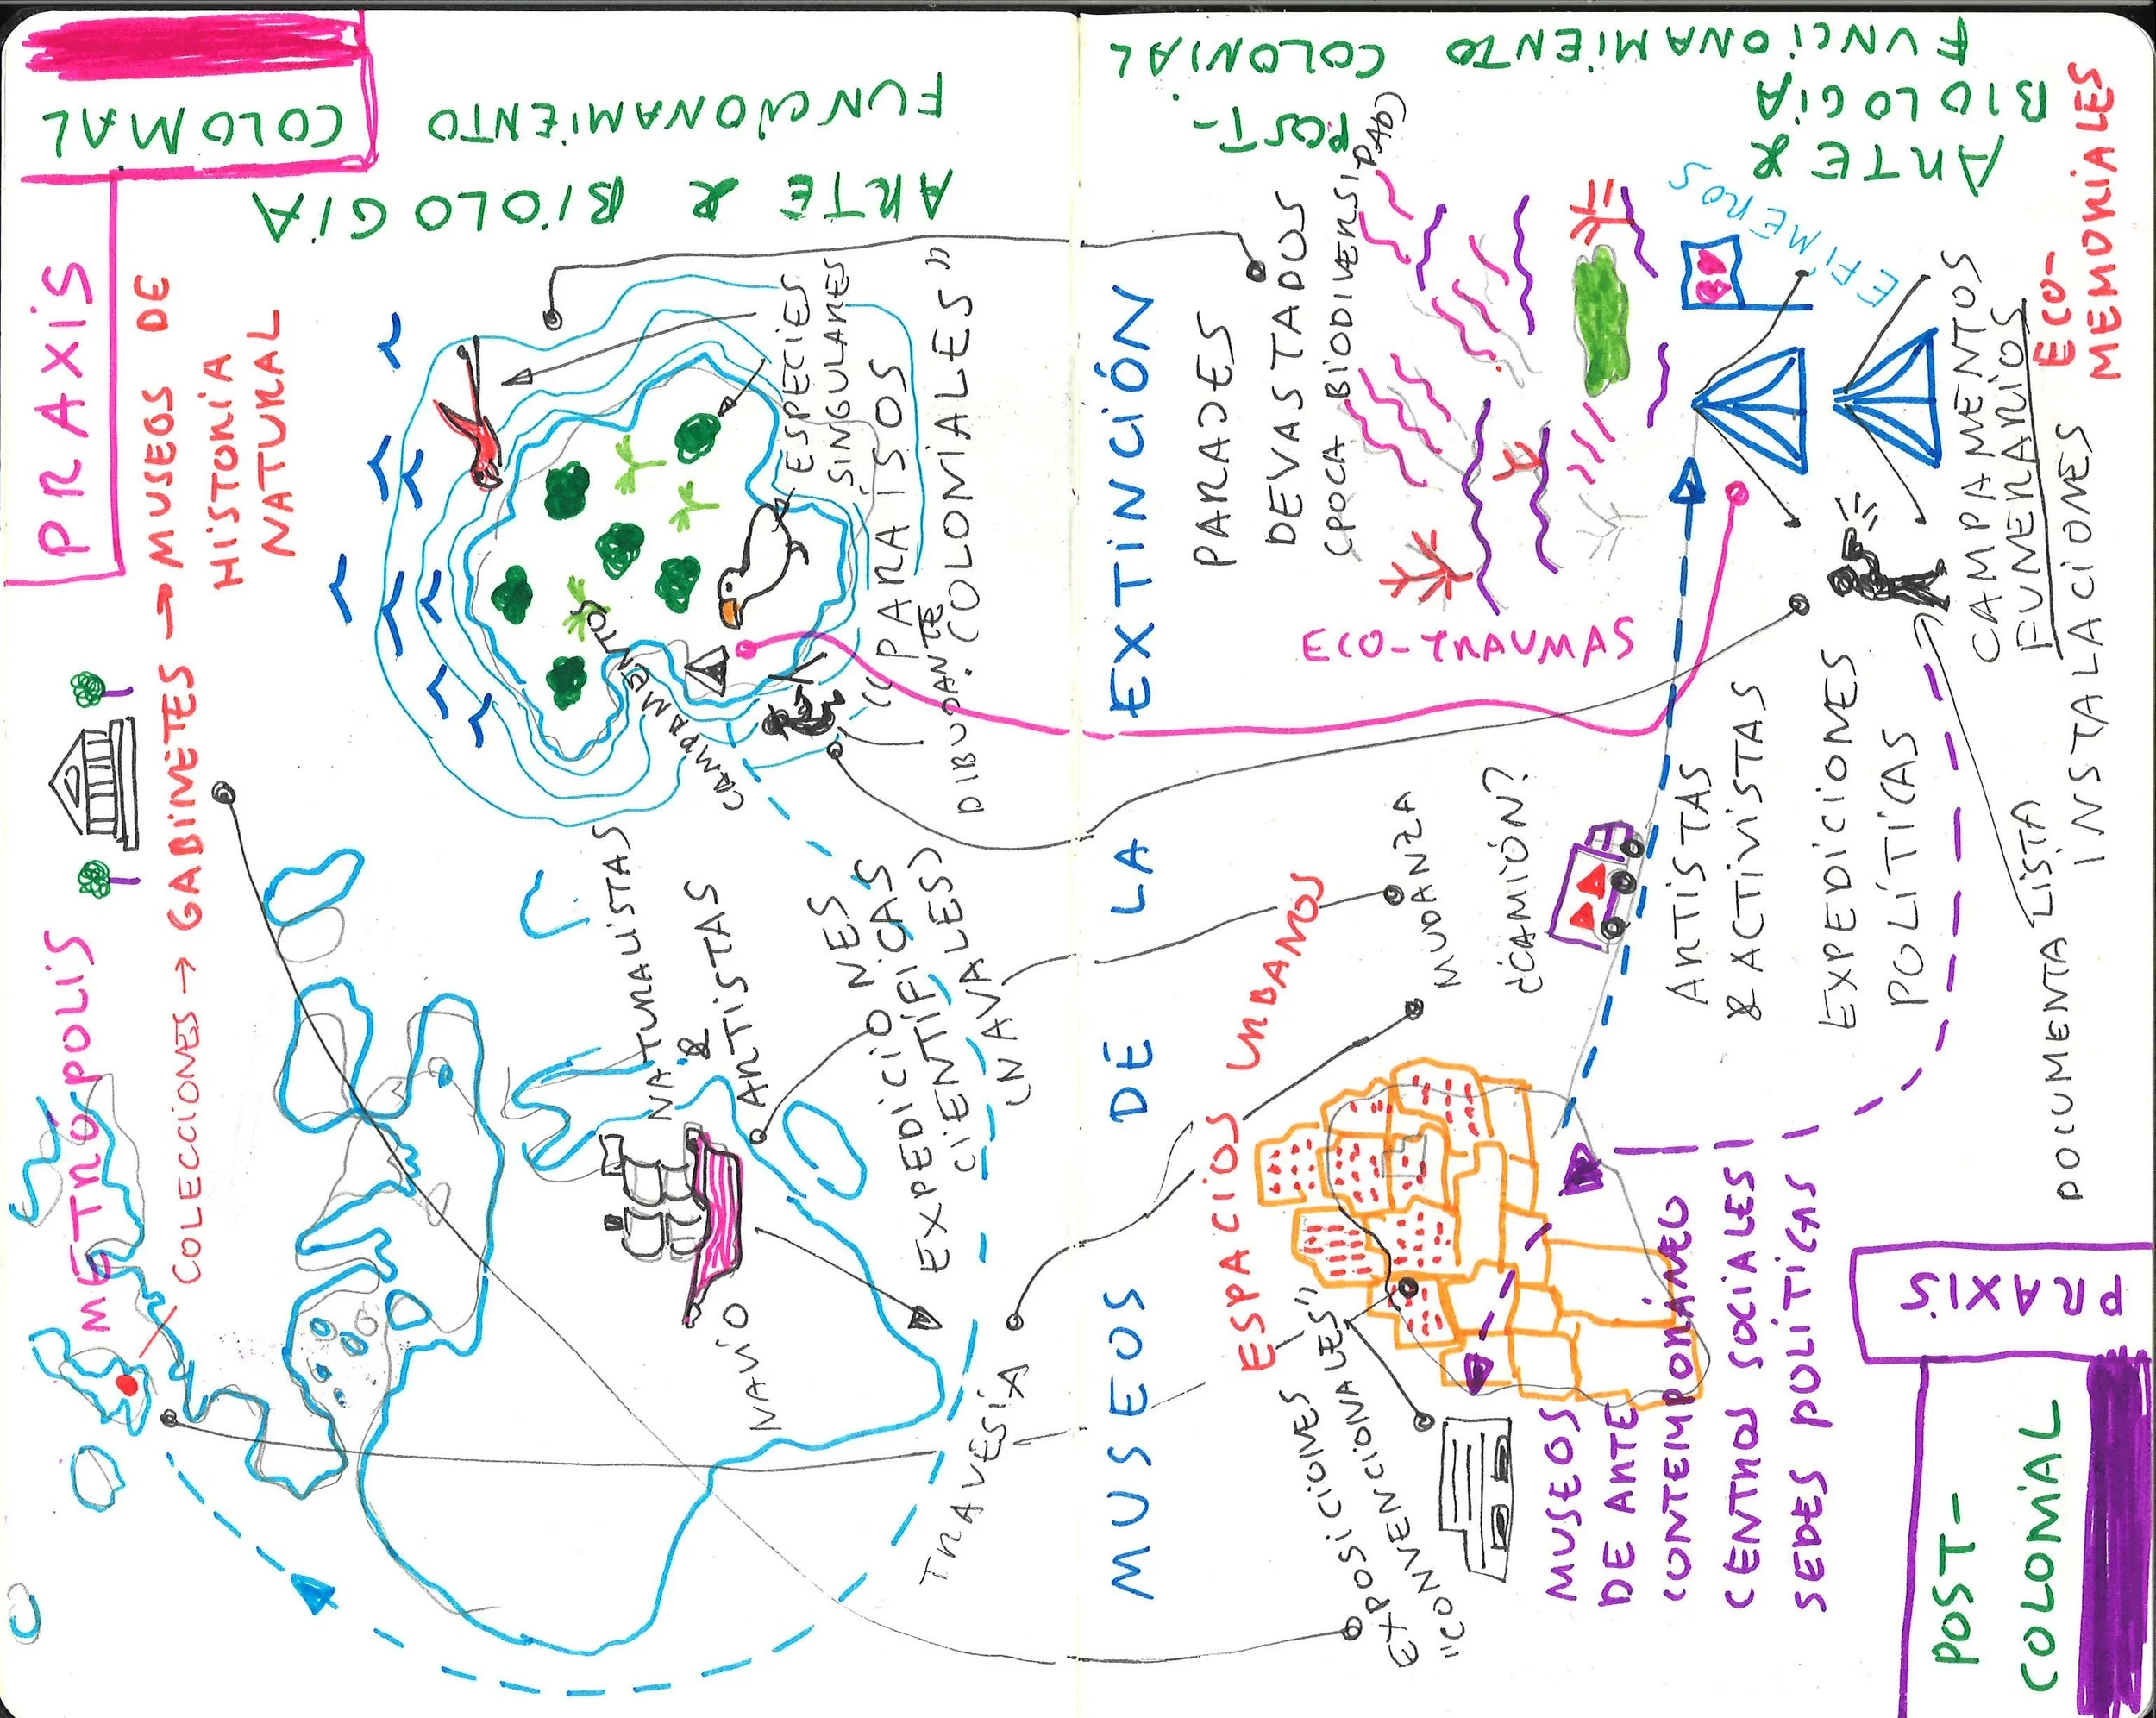 PRAXIS
COLONIAL
ARTE & BIOLOGÍA
FUNCIONAMIENTO
METRÓPOLIS
COLECCIONES → GABINETES → MUSEOS DE
HISTORIA
NATURAL
NATURALISTAS
&
ARTISTAS
NAVÍO
EXPEDICIONES
CIENTÍFICAS
(NAVALES)
TRAVESÍA
CAMPAMENTO
DIBUJANTE.
ESPECIES
SINGULARES
"PARAÍSOS
(COLONIALES)"
MUSEOS DE LA EXTINCIÓN
ARTE &
BIOLOGIA
FUNCIONAMIENTO
POST-
COLONIAL
PARAJES
DEVASTADOS
(POCA BIODIVERSIDAD)
ECO-TRAUMAS
ESPACIOS URBANOS
MUDANZA
¿CAMIÓN?
EXPOSICIONES
"CONVENCIONALES"
ARTISTAS
& ACTIVISTAS
EXPEDICIONES
POLÍTICAS
MUSEOS
DE ARTE
CONTEMPORÁNEO
CENTROS SOCIALES
SEDES POLÍTICAS
EFÍMEROS
CAMPAMENTOS
FUNERARIOS
INSTALACIONES
ECO-
MEMORIALES
DOCUMENTALISTA
PRAXIS
POST-
COLONIAL